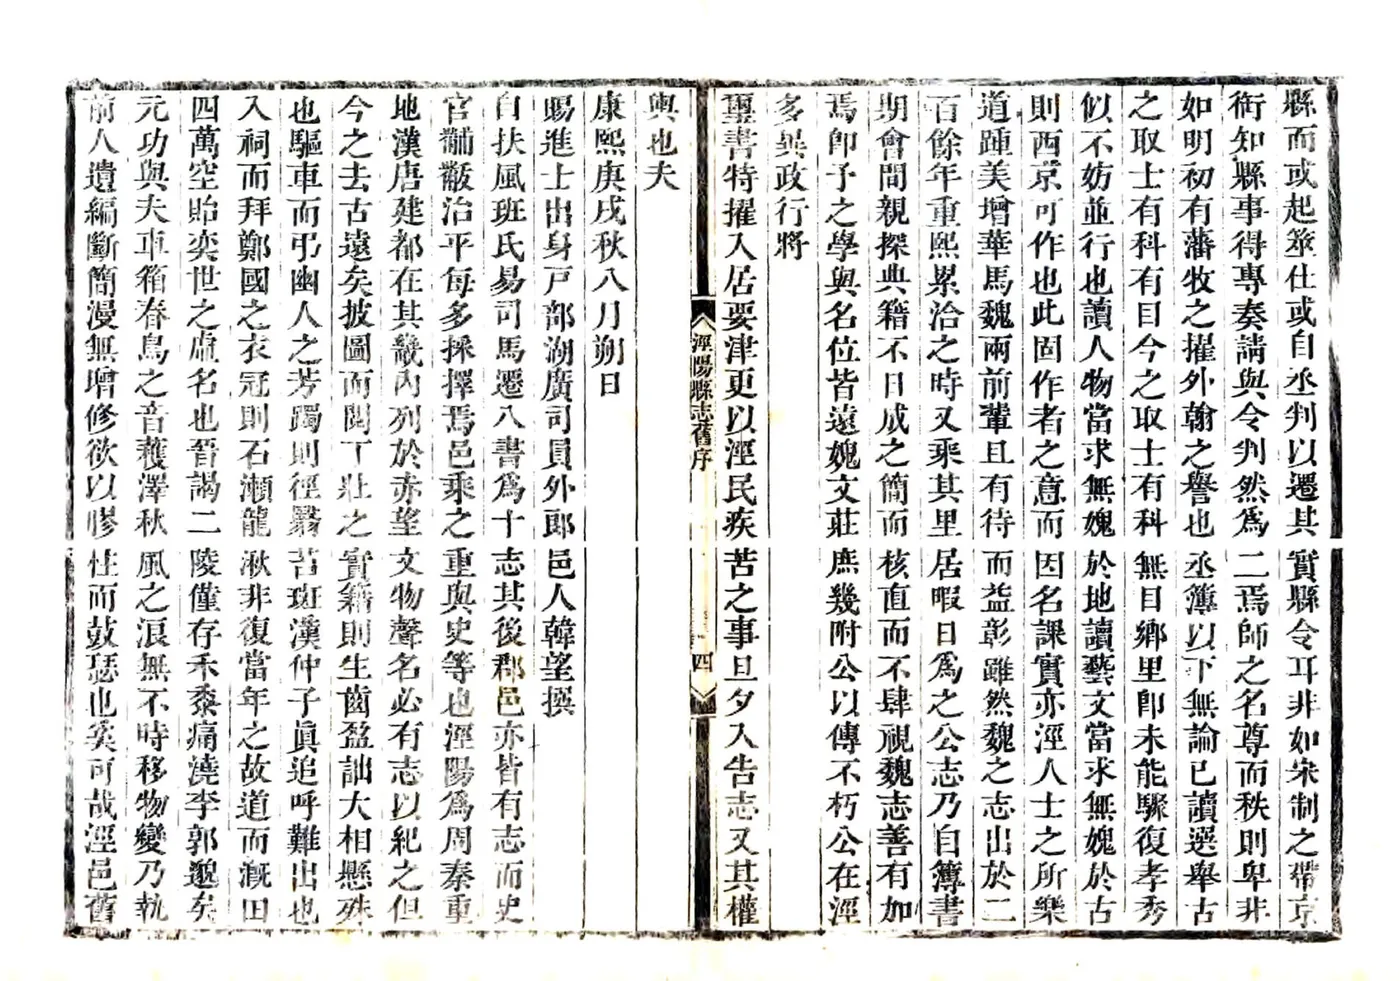 縣而或起筮仕或自丞判以遷其實縣令耳非如宋制之帶京
銜知縣事得專奏請與令判然爲二焉師之名尊而秩則卑非
如明初有藩牧之擢外翰之譽也丞簿以下無論已讀選舉古
之取士有科有目今之取士有科無目鄉里卽未能驟復孝秀
似不妨並行也讀人物當求無媿於地讀藝文當求無媿於古
則西京可作也此固作者之意而因名課實亦涇人士之所樂
道踵美增華馬魏兩前輩且有待而益彰雖然魏之志出於二
百餘年重熙累洽之時又乘其里居暇日爲之公志乃自簿書
期會間親探典籍不日成之簡而核直而不肆視魏志善有加
焉卽予之學與名位皆遠媿文莊庶幾附公以傳不朽公在涇
多異政行將
璽書特擢入居要津更以涇民疾苦之事旦夕入告志又其權
輿也夫
康熙庚戌秋八月朔日
賜進士出身戸部湖廣司員外郎邑人韓望撰
涇陽縣志舊序
四
自扶風班氏易司馬遷八書爲十志其後郡邑亦皆有志而史
官黼黻治平每多採擇焉邑乘之重與史等也涇陽爲周秦重
地漢唐建都在其畿內列於赤望文物聲名必有志以紀之但
今之去古遠矣披圖而閱丁壯之實籍則生齒盈詘大相懸殊
也驅車而弔幽人之芳躅則徑翳苔斑漢仲子眞追呼難出也
入祠而拜鄭國之衣冠則石瀨龍湫非復當年之故道而漑田
四萬空貽奕世之虛名也晉謁二陵僅存禾黍痛澆李郭邈矣
元功與夫車箱春鳥之音蒦澤秋風之浪無不時移物變乃執
前人遺編斷簡漫無增修欲以膠柱而鼓瑟也奚可哉涇邑舊